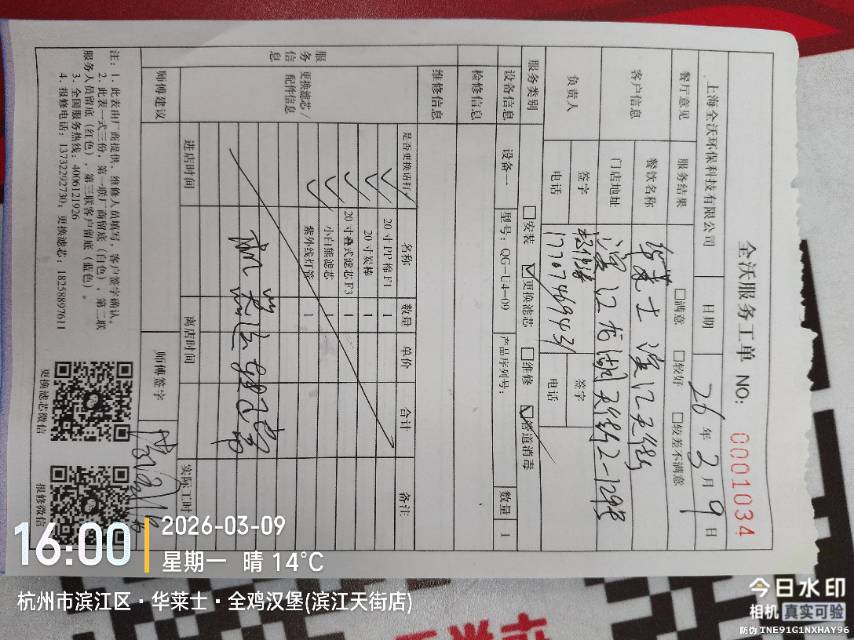 全沃服务工单 NO: 0001034
上海全沃环保科技有限公司 日期 26 年 3 月 9 日
餐厅意见 服务结果 □满意 □较好 □较差不满意
客户信息 餐饮名称 华莱士 滨江天街
门店地址 滨江龙湖天街2-129号
负责人 签字 签字
电话 17707469431 电话
服务类别 □安装 ☑更换滤芯 □维修 ☑管道消毒
设备信息 设备一 型号: QG-U4-09 产品序列号: 数量 1
检修信息
维修信息
服务信息 更换滤芯/配件信息 是否更换请打√ 名称 数量 单价 合计 备注
√ 20寸PP棉F1 1
√ 20寸炭棒 1
√ 20寸叠式滤芯F3 1
√ 小白熊滤芯 1
√ 紫外线灯管 1
师傅建议
进店时间 离店时间 实际工时
师傅签字
注: 1. 此表由厂商提供, 维修人员填写, 客户签字确认。
2. 此表一式三份, 第一联厂商留底(白色), 第二联
服务人员留底(红色), 第三联客户留底(蓝色)。
3. 全国服务热线: 4006121926
4. 报修电话: 13732292730, 更换滤芯: 18258897611
更换滤芯微信 报修微信
16:00 2026-03-09
星期一 晴 14°C
杭州市滨江区·华莱士·全鸡汉堡(滨江天街店)
今日水印
相机 真实可验
防伪 TNE91G1NXHAY96